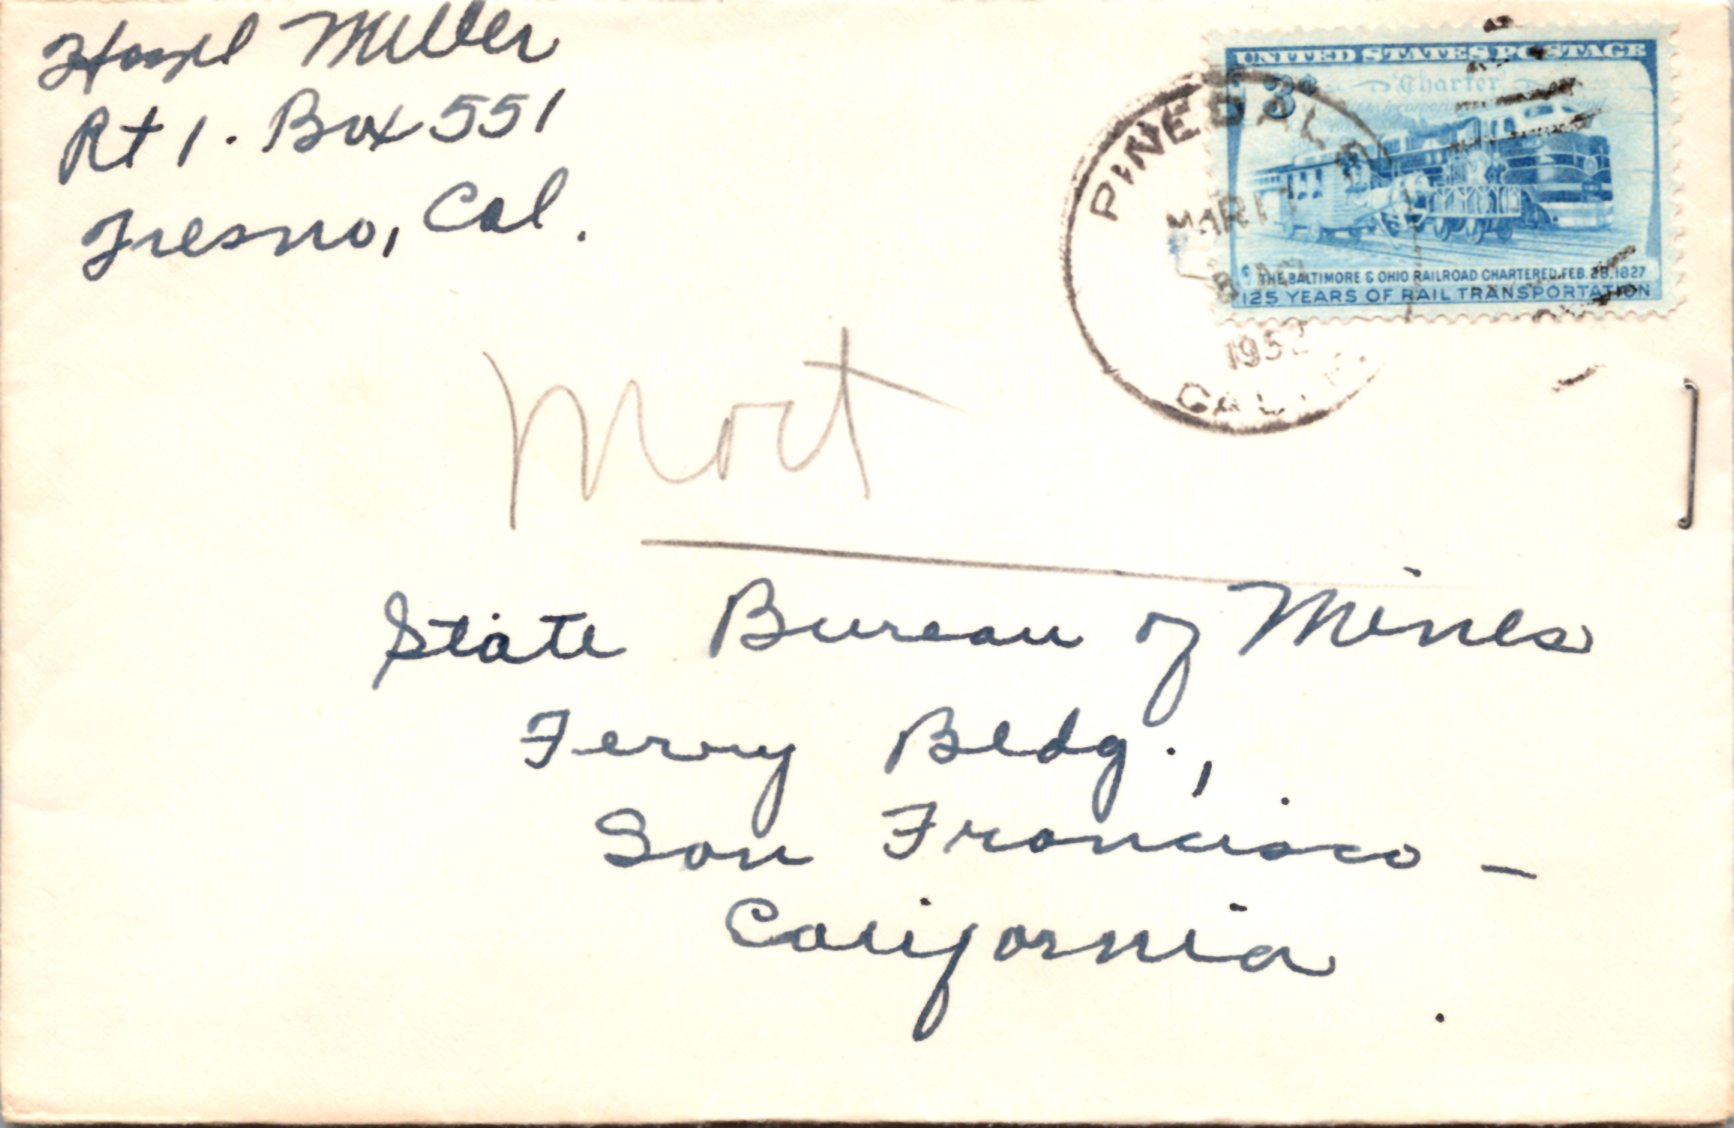 Hazel Miller
Rt 1. Box 551
Fresno, Cal.
UNITED STATES POSTAGE
3¢
Charter
THE BALTIMORE & OHIO RAILROAD CHARTERED FEB. 28, 1827
125 YEARS OF RAIL TRANSPORTATION
PINEDALE
MAR
1952
CALIF.
Mort
State Bureau of Mines
Ferry Bldg.,
San Francisco -
California